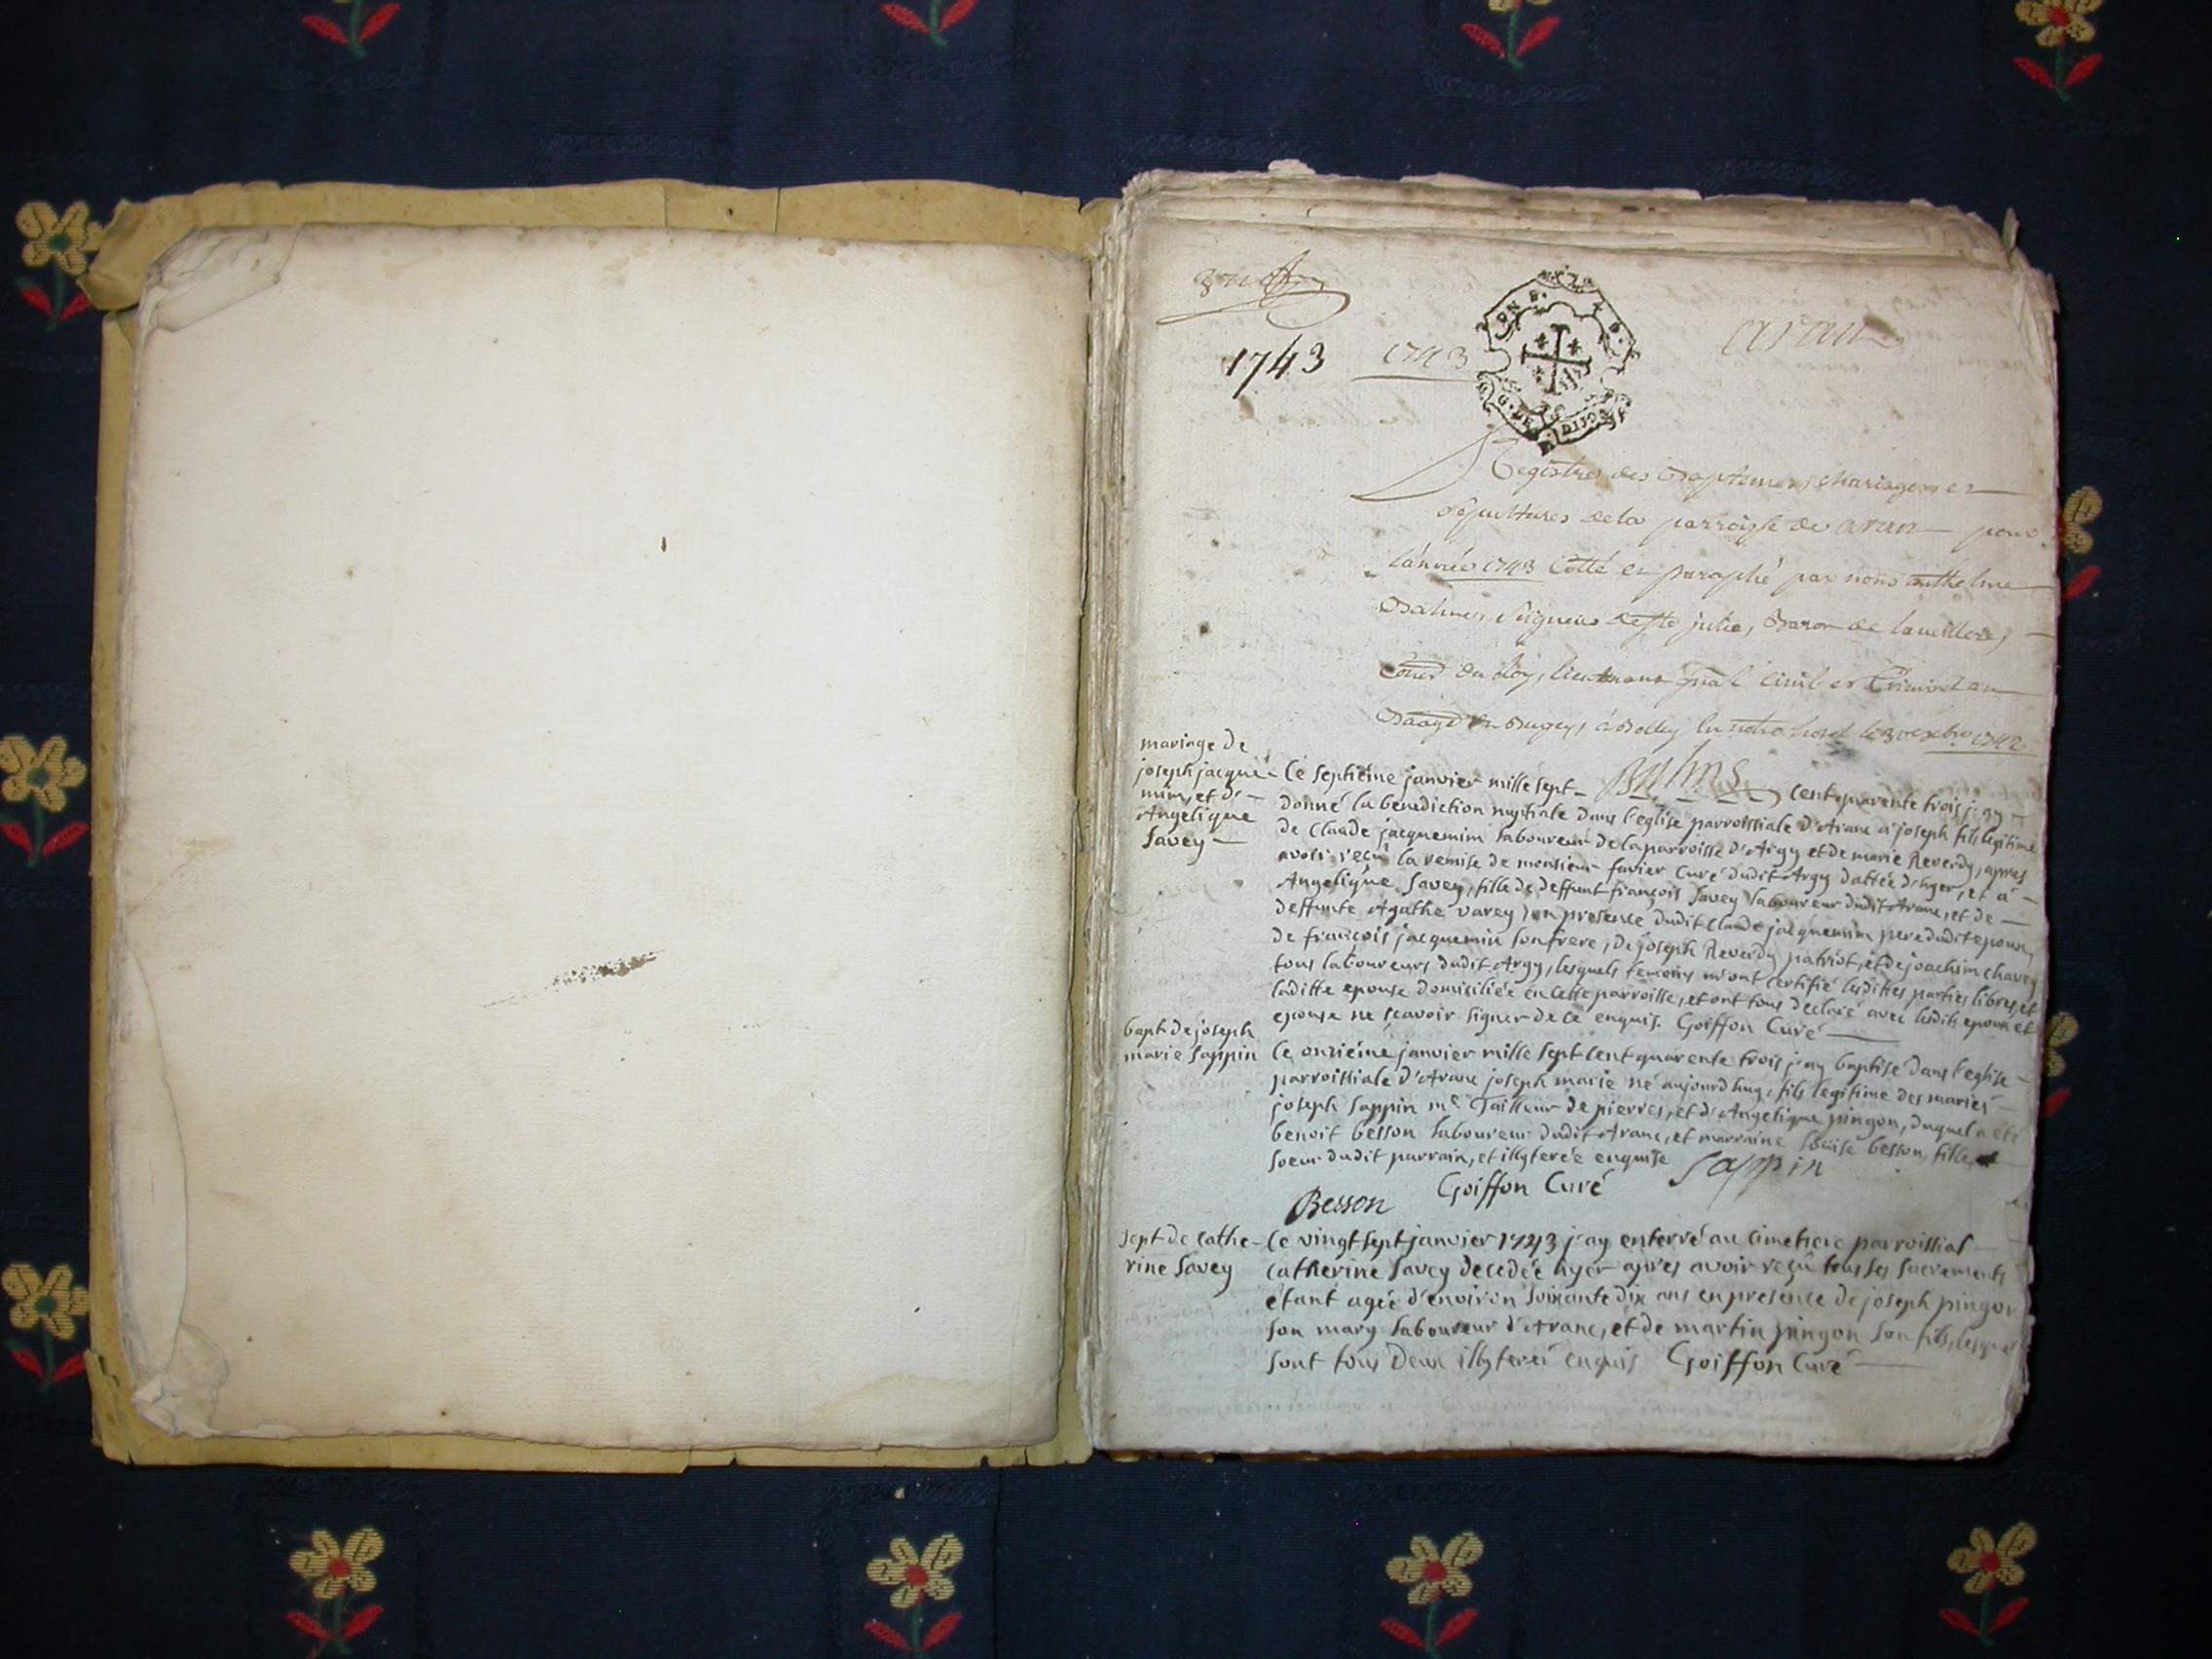 1743 1743
aran
Registres des Baptemes, Mariages et
sepultures de la parroisse de aran pour
l'année 1743 Cotté et paraphé par nous anthelme
Balme, Seigneur de Ste julie, Baron de
du Roy, lieutenant gnal Civil et Criminel au
Baage du Bugey, à Belley en notre hotel le 3 1742
Balme
mariage de
joseph jacque-
min, et d'
Angelique
Savey
Le septiéme janvier mille sept cent quarente trois j'ay
donné la benediction nuptiale dans l'eglise parroissiale d'Aranc a joseph fils legitime
de Claude jacquemin laboureur de la parroisse d'Argy et de marie Reverdy, apres
avoir reçu la remise de monsieur favier Curé dudit Argy dattée d'hyer, et à
Angelique Savey, fille de deffunt françois Savey laboureur dudit Aranc, et de
deffunte Agathe varey, en presence dudit Claude jacquemin pere dudit epoux,
de françois jacquemin son frere, de joseph Reverdy patriot, et de joachim chavey
tous laboureurs dudit Argy, lesquels temoins m'ont certifié lesdittes parties libres, et
laditte epouse domiciliée en cette parroisse, et ont tous declaré avec lesdits epoux et
epouse ne sçavoir signer de ce enquis. Goiffon Curé
bapt de joseph
marie Sappin
Le onziéme janvier mille sept cent quarente trois j'ay baptisé dans l'eglise
parroissiale d'Aranc joseph marie né aujourd'huy, fils legitime des mariés
joseph Sappin me Tailleur de pierres, et d'Angelique pingon, duquel a été
benoit besson laboureur dudit Aranc, et marraine loüise besson, fille
soeur dudit parrain, et illyterée enquise Sappin
Besson Goiffon Curé
sept de Cathe-
rine Savey
Le vingt sept janvier 1743 j'ay enterré au cimetiere parroissial
Catherine Savey decedée hyer apres avoir reçû tous ses sacrements
étant agée d'environ soixante dix ans en presence de joseph pingon
son mary laboureur d'Aranc, et de martin pingon son fils, lesquels
sont tous deux illyterés enquis Goiffon Curé